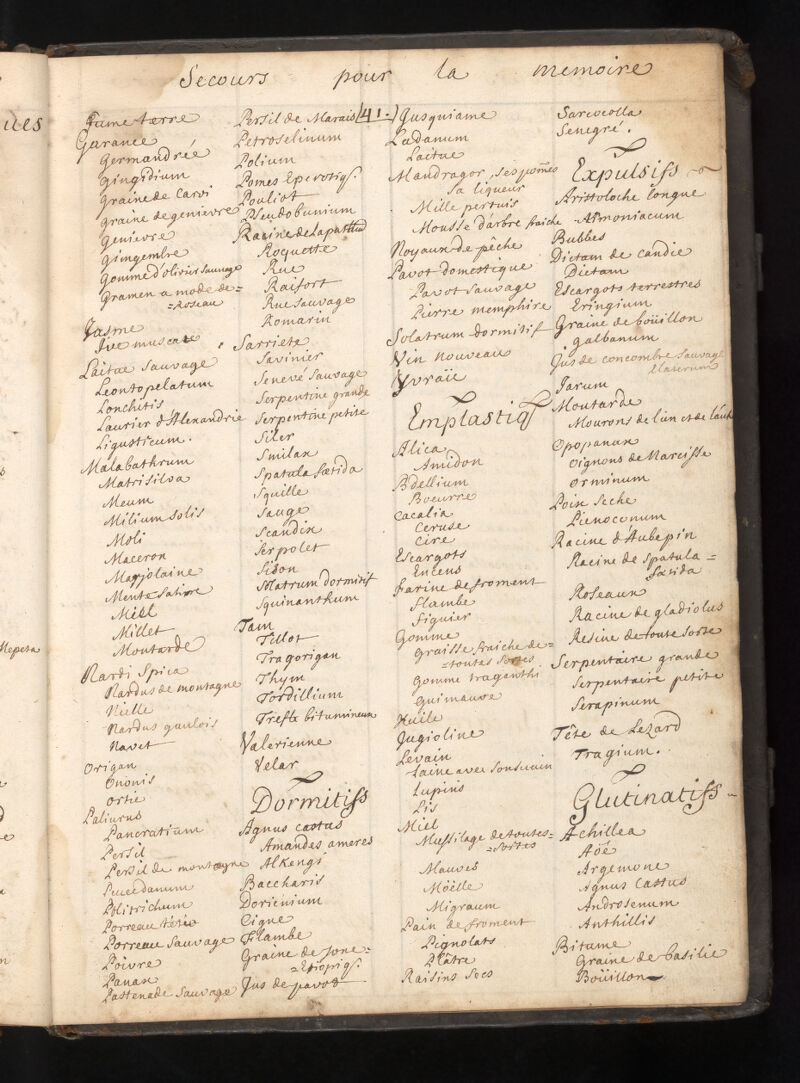 Secours pour la memoire
(41.)
Fume terre
Garance
Germandrée
Gingidium
Graine de Carvi
Graine de genievre
Genievre
Gingembre
Gomme d'olivier sauvage
Gramen a mode de=
=Roseau
Jasme
Ive muscate
Laitue sauvage
Leontopelatum
Lonchitis
Laurier d'Alexandrie
Ligusticum.
Malabathrum
Matrisilva
Meum
Milium solis
Moli
Maceron
Marjolaine
Mente
Miel
Millet
Moutarde
Nardi Spica
Nardus de montagne
Nielle
Nardus gaulois
Navet
Origan
Ononis
Ortie
Paliurus
Pancratium
Persil
Persil de montagne
Peucedanum
Politrichum
Porreau
Porreau Sauvage
Poivre
Panax
Pastenade Sauvage
Persil de Marais
Petroselinum
Polium
Pomes
Pouliot
Pseudobunium
Racine de Lapathum
Roquette
Rue
Raifort
Rue Sauvage
Romarin
Sarriete
Savinier
Senevé Sauvage
Serpentine grande
Serpentine petite
Siler
Smilax
Spatula fœtida
Squille
Sauge
Scandix
Serpolet
Sison
Solatrum dormitif
Squinanthum
Tam
Tillot
Tragorigan
Thym
Tordillium
Trefle bitumineux
Valerienne
Velar
Dormitifs
Agnus castus
Amandes ameres
Alkengi
Baccharis
Doricnium
Cigue
Flambe
Graine de Jonc=
=Etiopiq.
Jus de pavot
Jusquiame
Ladanum
Laitue
Mandragor, ses pom̃es
sa liqueur
Mille pertuis
Mousse d'arbre fraiche
Noyaux de pêche
Pavot domestique
Pavot Sauvage
Pierre memphire
Solatrum dormitif
Vin nouveau
Yvraïe
Emplastiq
Alica
Amidon
Bdellium
Boeurre
Cacalia
Ceruse
Cire
Escargots
Encens
Farine de froment
Flambe
Figuier
Gomme
Graisse fraiche de=
=toutes sortes
Gomme traganthi
Guimauve
Huile
Jugioline
Levain
Laine avec son suin
Lupins
Lis
Miel
Mussilage de toutes=
=sortes
Mauves
Möelle
Migraum
Pain de froment
Pignolats
Plâtre
Raisins Secs
Sarcocolla
Senegré.
Expulsifs
Aristoloche longue
Armoniacum
Bubbes
Dictam de candie
Dictam
Escargots terrestres
Eringium
Graine de boüillon
galbanum
Jus de concombre Sauvage
Elaterium
Jarum
Moutarde
Mourons de l'un et de l'autre
Opopanax
Oignons de Narcisse
Orminum
Poix Seche
Picnocomum
Racine d'Aubepin
Racine de Spatula=
fœtida
Roseaux
Racine de gladiolus
Resine de toute sorte
Serpentaire grande
Serpentaire petite
Serapinum
Tête de Lezard
Tragium.
Glutinatifs
Achillea
Aöé
Argemone
Agnus Castus
Androsenum
Anthillis
Bitume
Graine de basilic
Boüillon